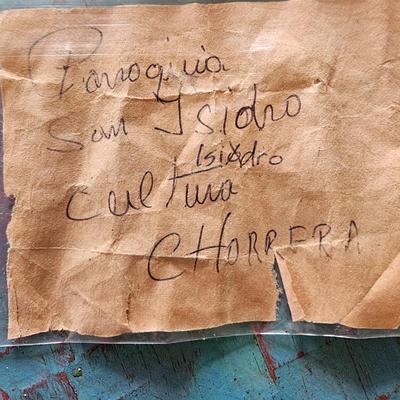 Parroquia
San Isidro
Isidro
Cultura
CHORRERA